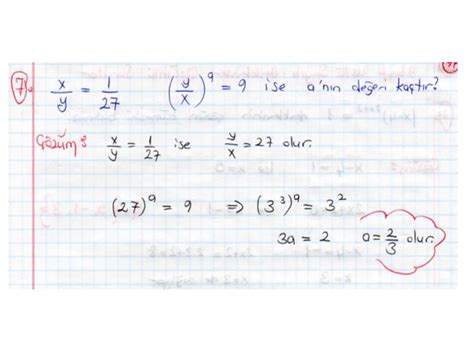 7. x/y = 1/27 (y/x)^a = 9 ise a'nın değeri kaçtır?
Çözüm: x/y = 1/27 ise y/x = 27 olur.
(27)^a = 9 ⇒ (3^3)^a = 3^2
3a = 2 a = 2/3 olur.